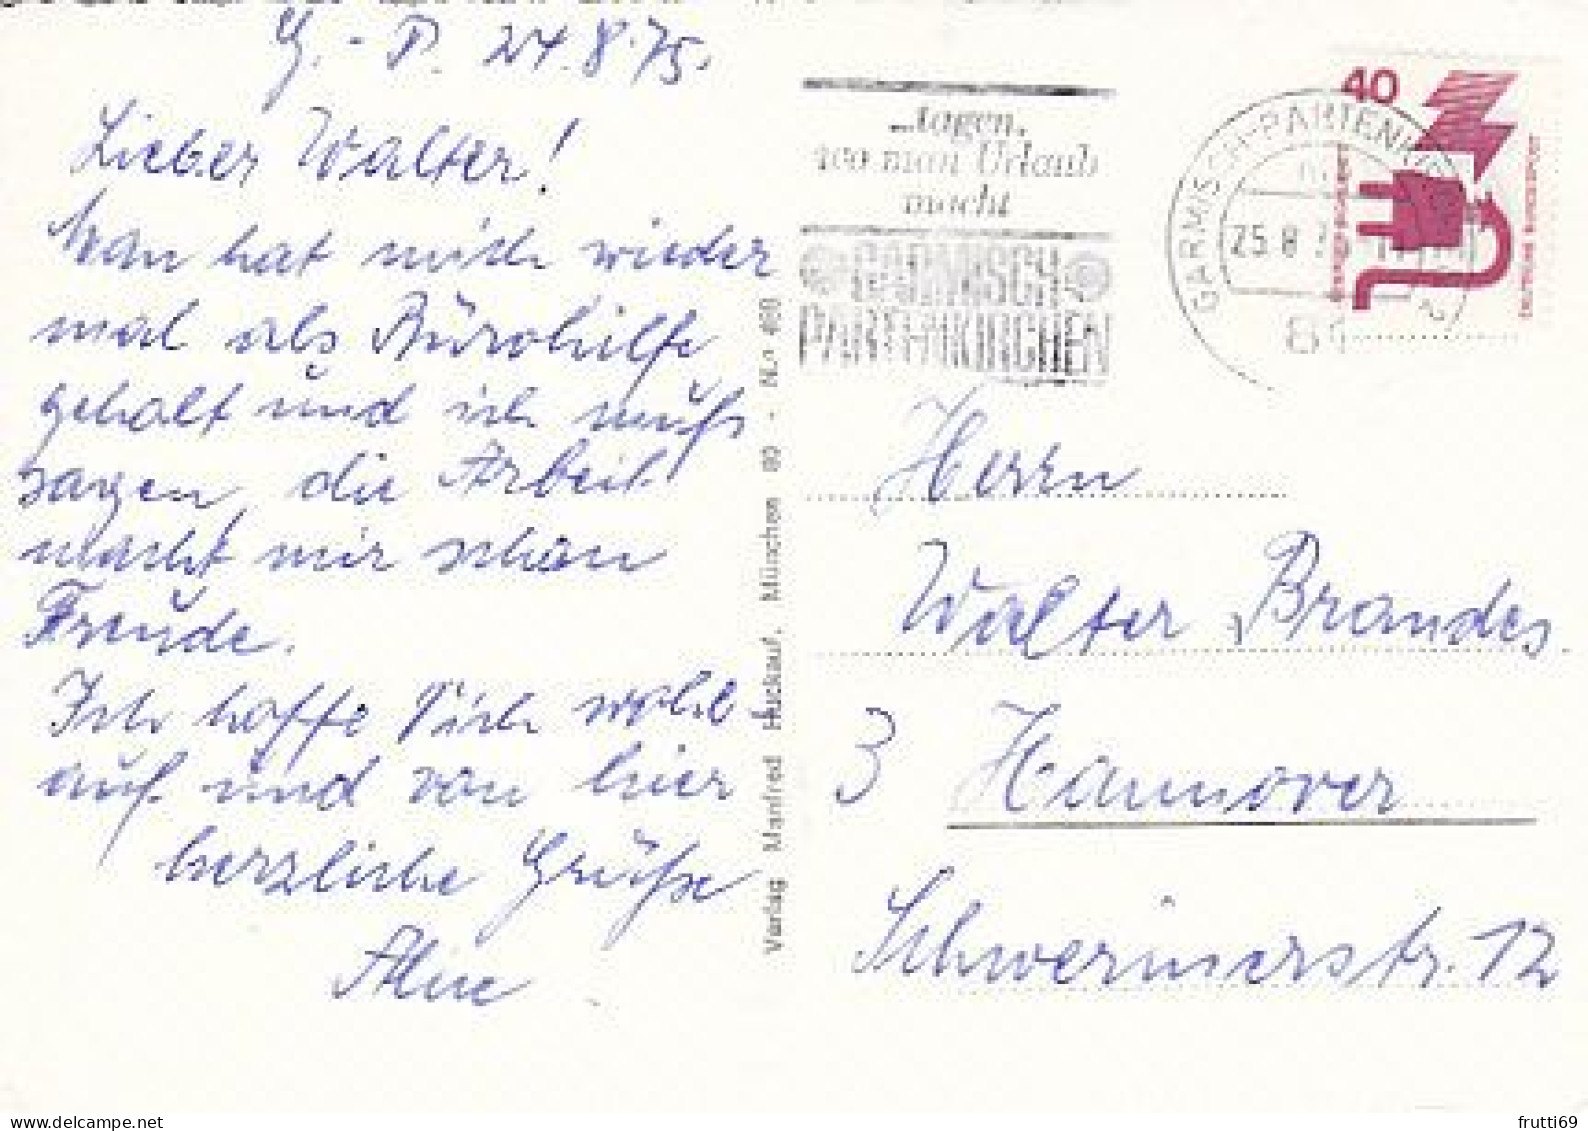 G.-P. 24.8.75.
Lieber Walter!
Man hat mich wieder
mal als Bürohilfe
geholt und ich muß
sagen, die Arbeit
macht mir schon
Freude.
Ich hoffe Dich wohl-
auf und von hier
herzliche Grüße
Aline
Verlag Manfred Huckauf, München 80 - N.o 460
...tagen,
wo man Urlaub
macht
GARMISCH
PARTENKIRCHEN
GARMISCH-PARTENKI
25.8.75
40
DEUTSCHE BUNDESPOST
Herrn
Walter Brandes
3 Hannover
Schwerinerstr. 12
frutti69